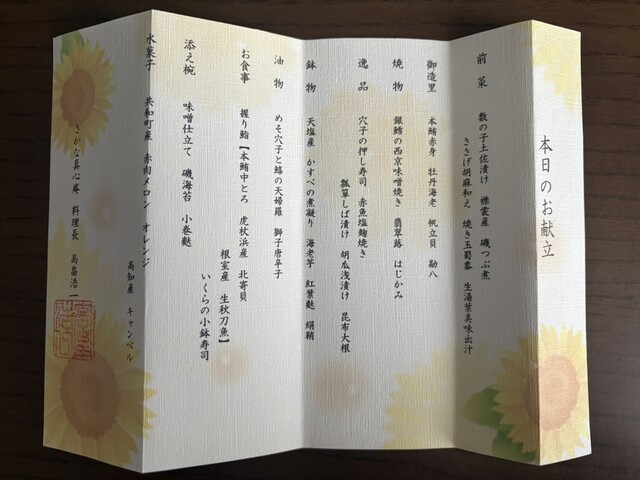 本日のお献立
前菜 数の子土佐漬け 襟裳産 磯つぶ煮
ささげ胡麻和え 焼き玉蜀黍 生湯葉美味出汁
御造里 本鮪赤身 牡丹海老 帆立貝 勘八
焼物 銀鱈の西京味噌焼き 翡翠蕗 はじかみ
逸品 穴子の押し寿司 赤魚塩麹焼き
瓢箪しば漬け 胡瓜浅漬け 昆布大根
鉢物 天塩産 かすべの煮凝り 海老芋 紅葉麩 絹鞘
油物 めそ穴子と鱚の天婦羅 獅子唐辛子
お食事 握り鮨【本鮪中とろ 虎杖浜産 北寄貝
根室産 生秋刀魚】
いくらの小鉢寿司
添え椀 味噌仕立て 磯海苔 小巻麩
水菓子 共和町産 赤肉メロン オレンジ
高知産 キャンベル
さかな真心庵 料理長 高畠浩一